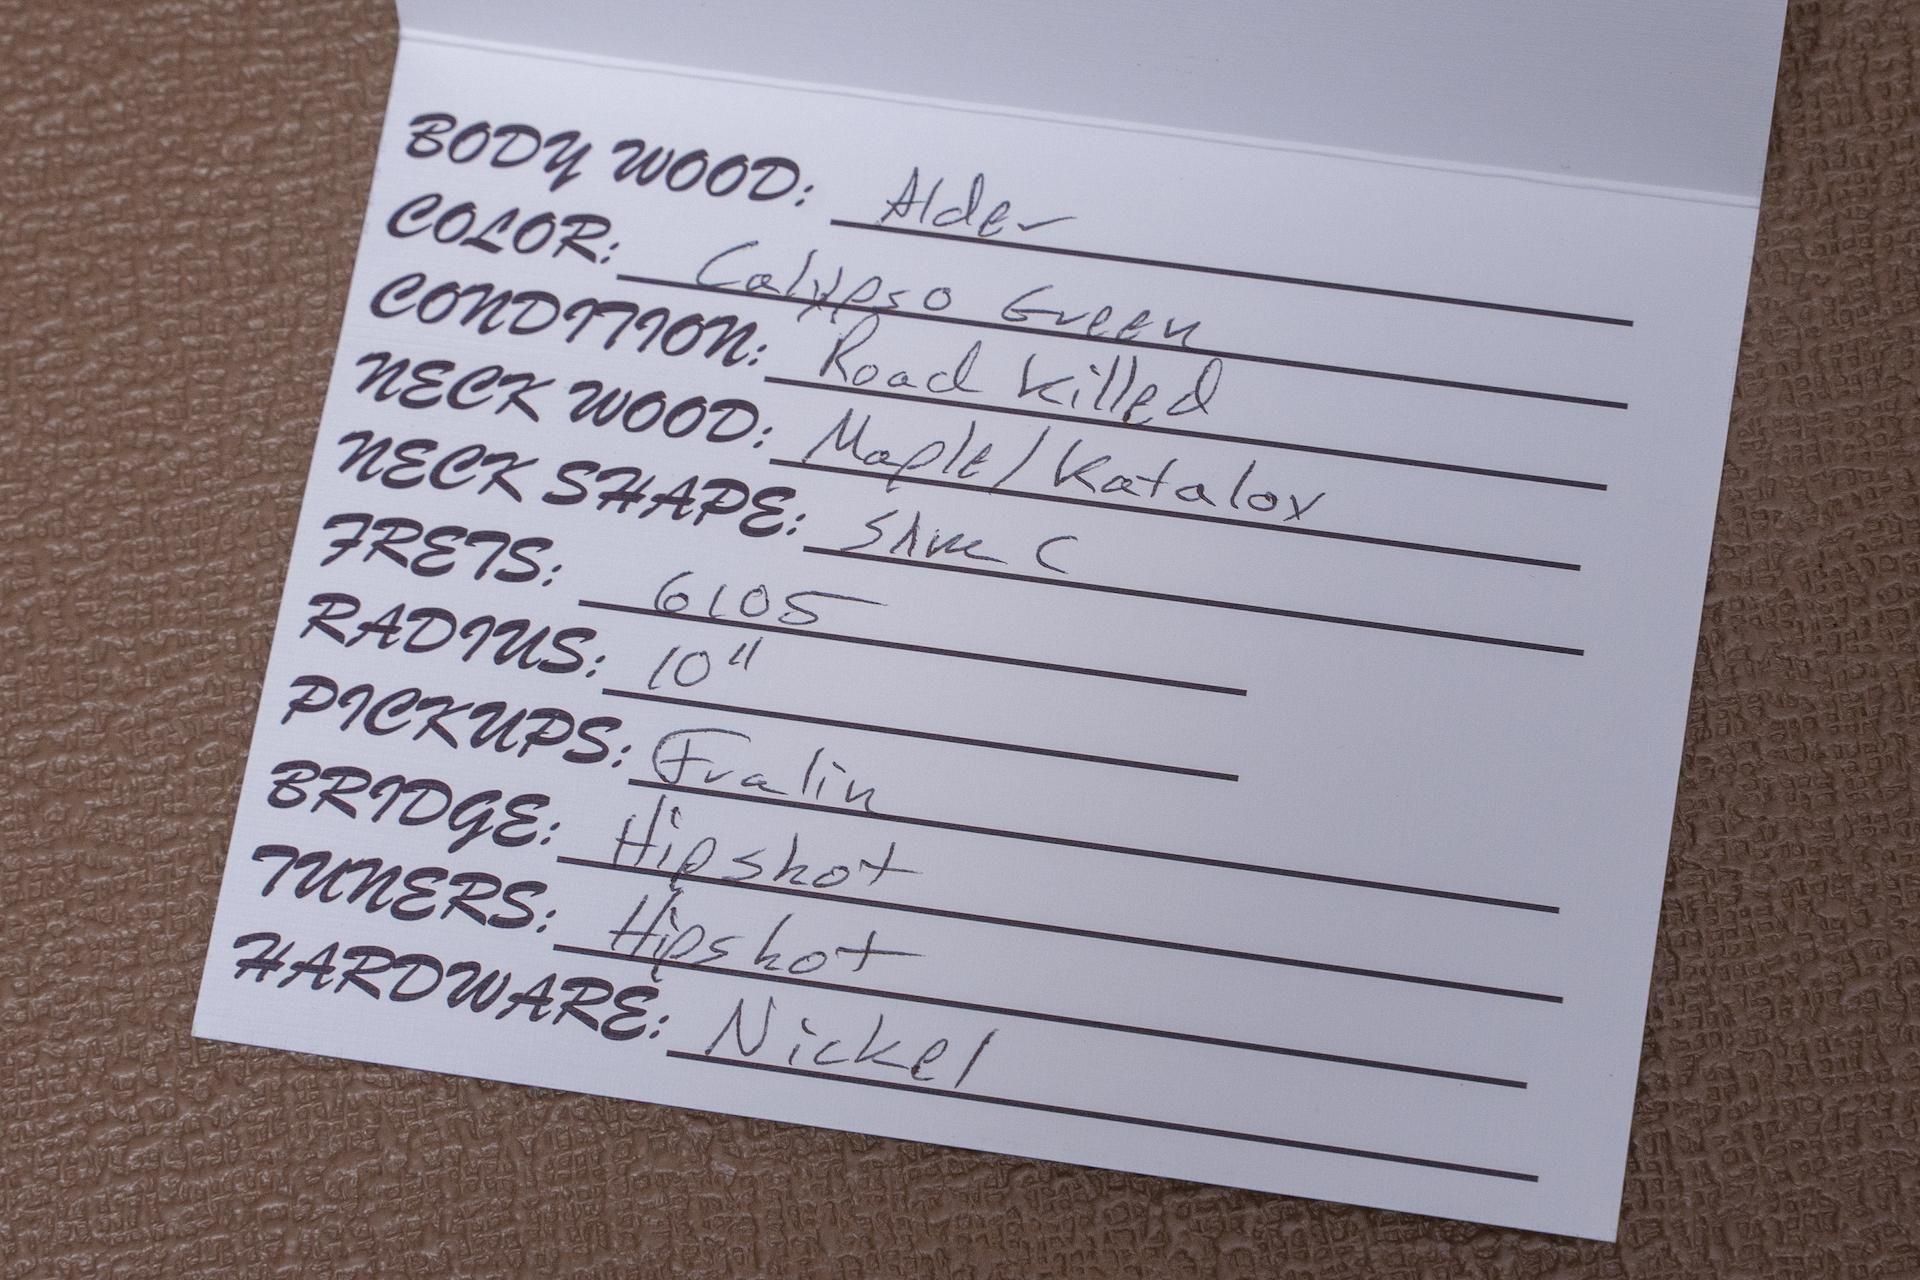 BODY WOOD: Alder
COLOR: Calypso Green
CONDITION: Road Killed
NECK WOOD: Maple/Katalox
NECK SHAPE: Slim C
FRETS: 6105
RADIUS: 10"
PICKUPS: Fralin
BRIDGE: Hipshot
TUNERS: Hipshot
HARDWARE: Nickel